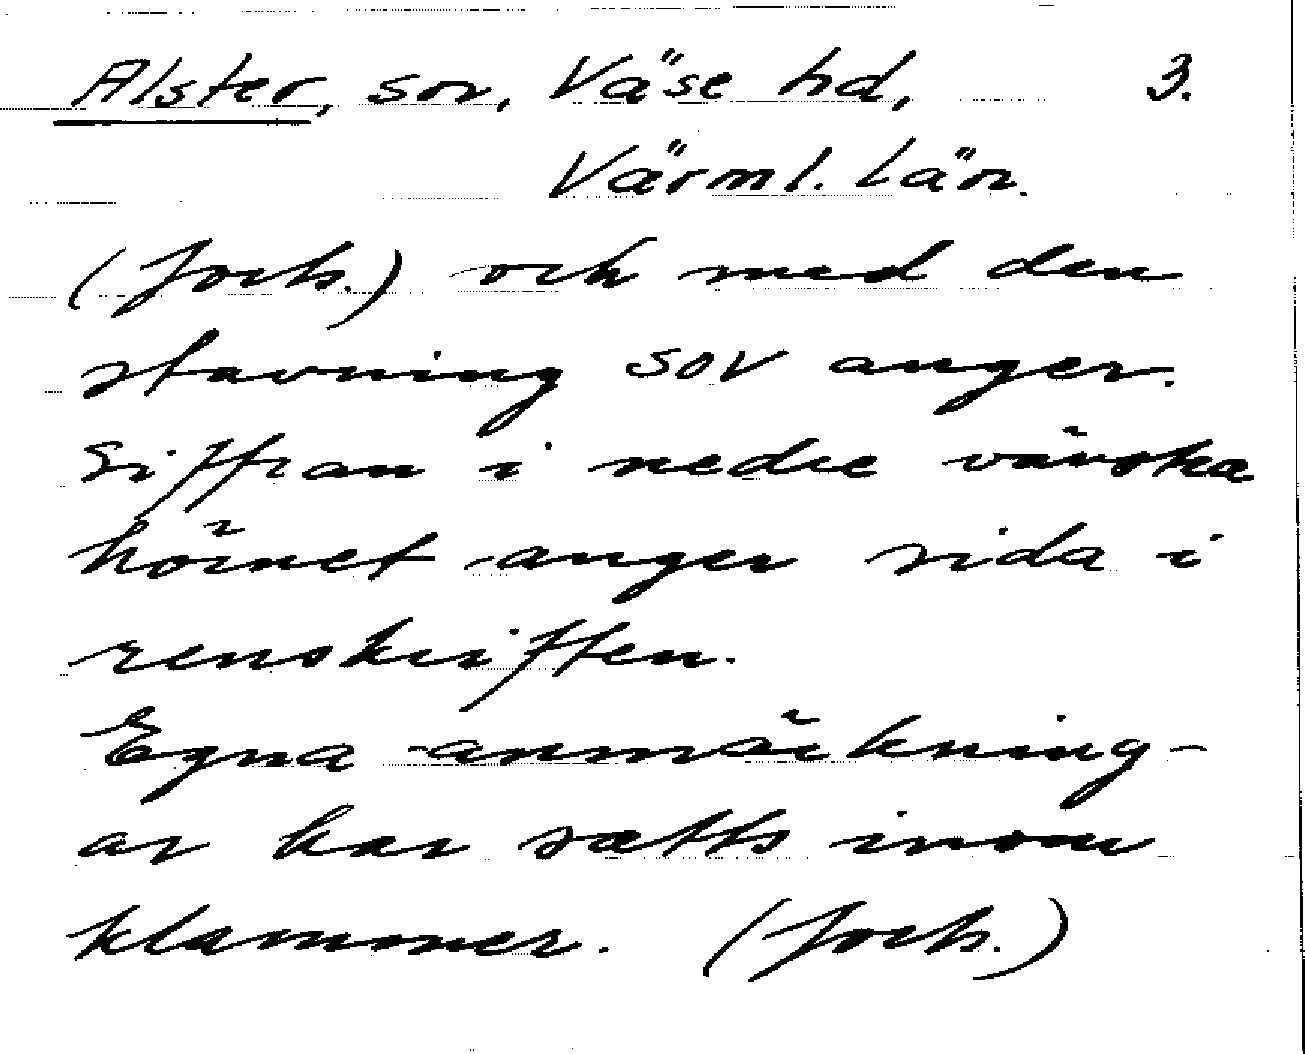 Alster, sov, Väse hd, 3.
Värml. Län.
(forts.) och med den
stavning SOV anger.
Siffran i nedre vänstra
hörnet anger sida i
renskriften.
Egna anmärkning-
ar har satts inom
klammer. (forts.)